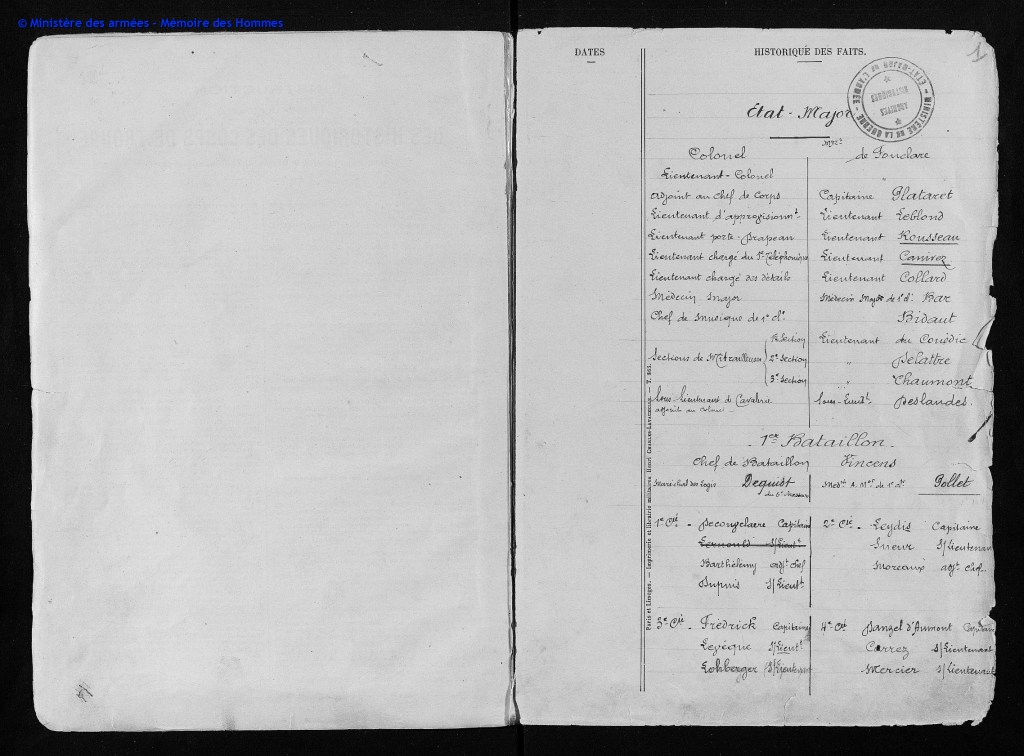 © Ministère des armées - Mémoire des Hommes
DATES
HISTORIQUE DES FAITS.
1
MINISTÈRE DE LA GUERRE - ÉTAT-MAJOR DE L'ARMÉE
ARCHIVES HISTORIQUES
État-Major
Colonel de Fonclare
Lieutenant-Colonel "
Adjoint au Chef de Corps Capitaine Plataret
Lieutenant d'approvisionnt Lieutenant Leblond
Lieutenant porte-Drapeau Lieutenant Rousseau
Lieutenant chargé du Sce Téléphonique Lieutenant Camirez
Lieutenant chargé des détails Lieutenant Collard
Médecin Major Médecin Major de 1e cl. Bar
Chef de Musique de 1e cl. Bidaut
Sections de Mitrailleuses
1e Section Lieutenant du Couëdic
2e Section " Delattre
3e Section " Chaumont
Sous-Lieutenant de Cavalerie Sous-Lieutt Deslandes.
adjoint au Colonel
1er Bataillon
Chef de Bataillon Vincens
Maréchal des Logis Dequidt Medin A. Mor de 1e cl. Pollet
du 6e Chasseurs
1e Cie - Deconyclaere Capitaine 2e Cie - Leydis Capitaine
Lernould S/Lieutt Sueur S/Lieutenant
Barthélemy adjt Chef Moreaux adjt Chef
Dupuis S/Lieutt
3e Cie - Frédrick Capitaine 4e Cie Danzel d'Aumont Capitaine
Levêque S/Lieutt Carrez S/Lieutenant
Lohberger S/Lieutenant Mercier S/Lieutenant
Paris et Limoges. — Imprimerie et librairie militaires. Henri CHARLES-LAVAUZELLE. —